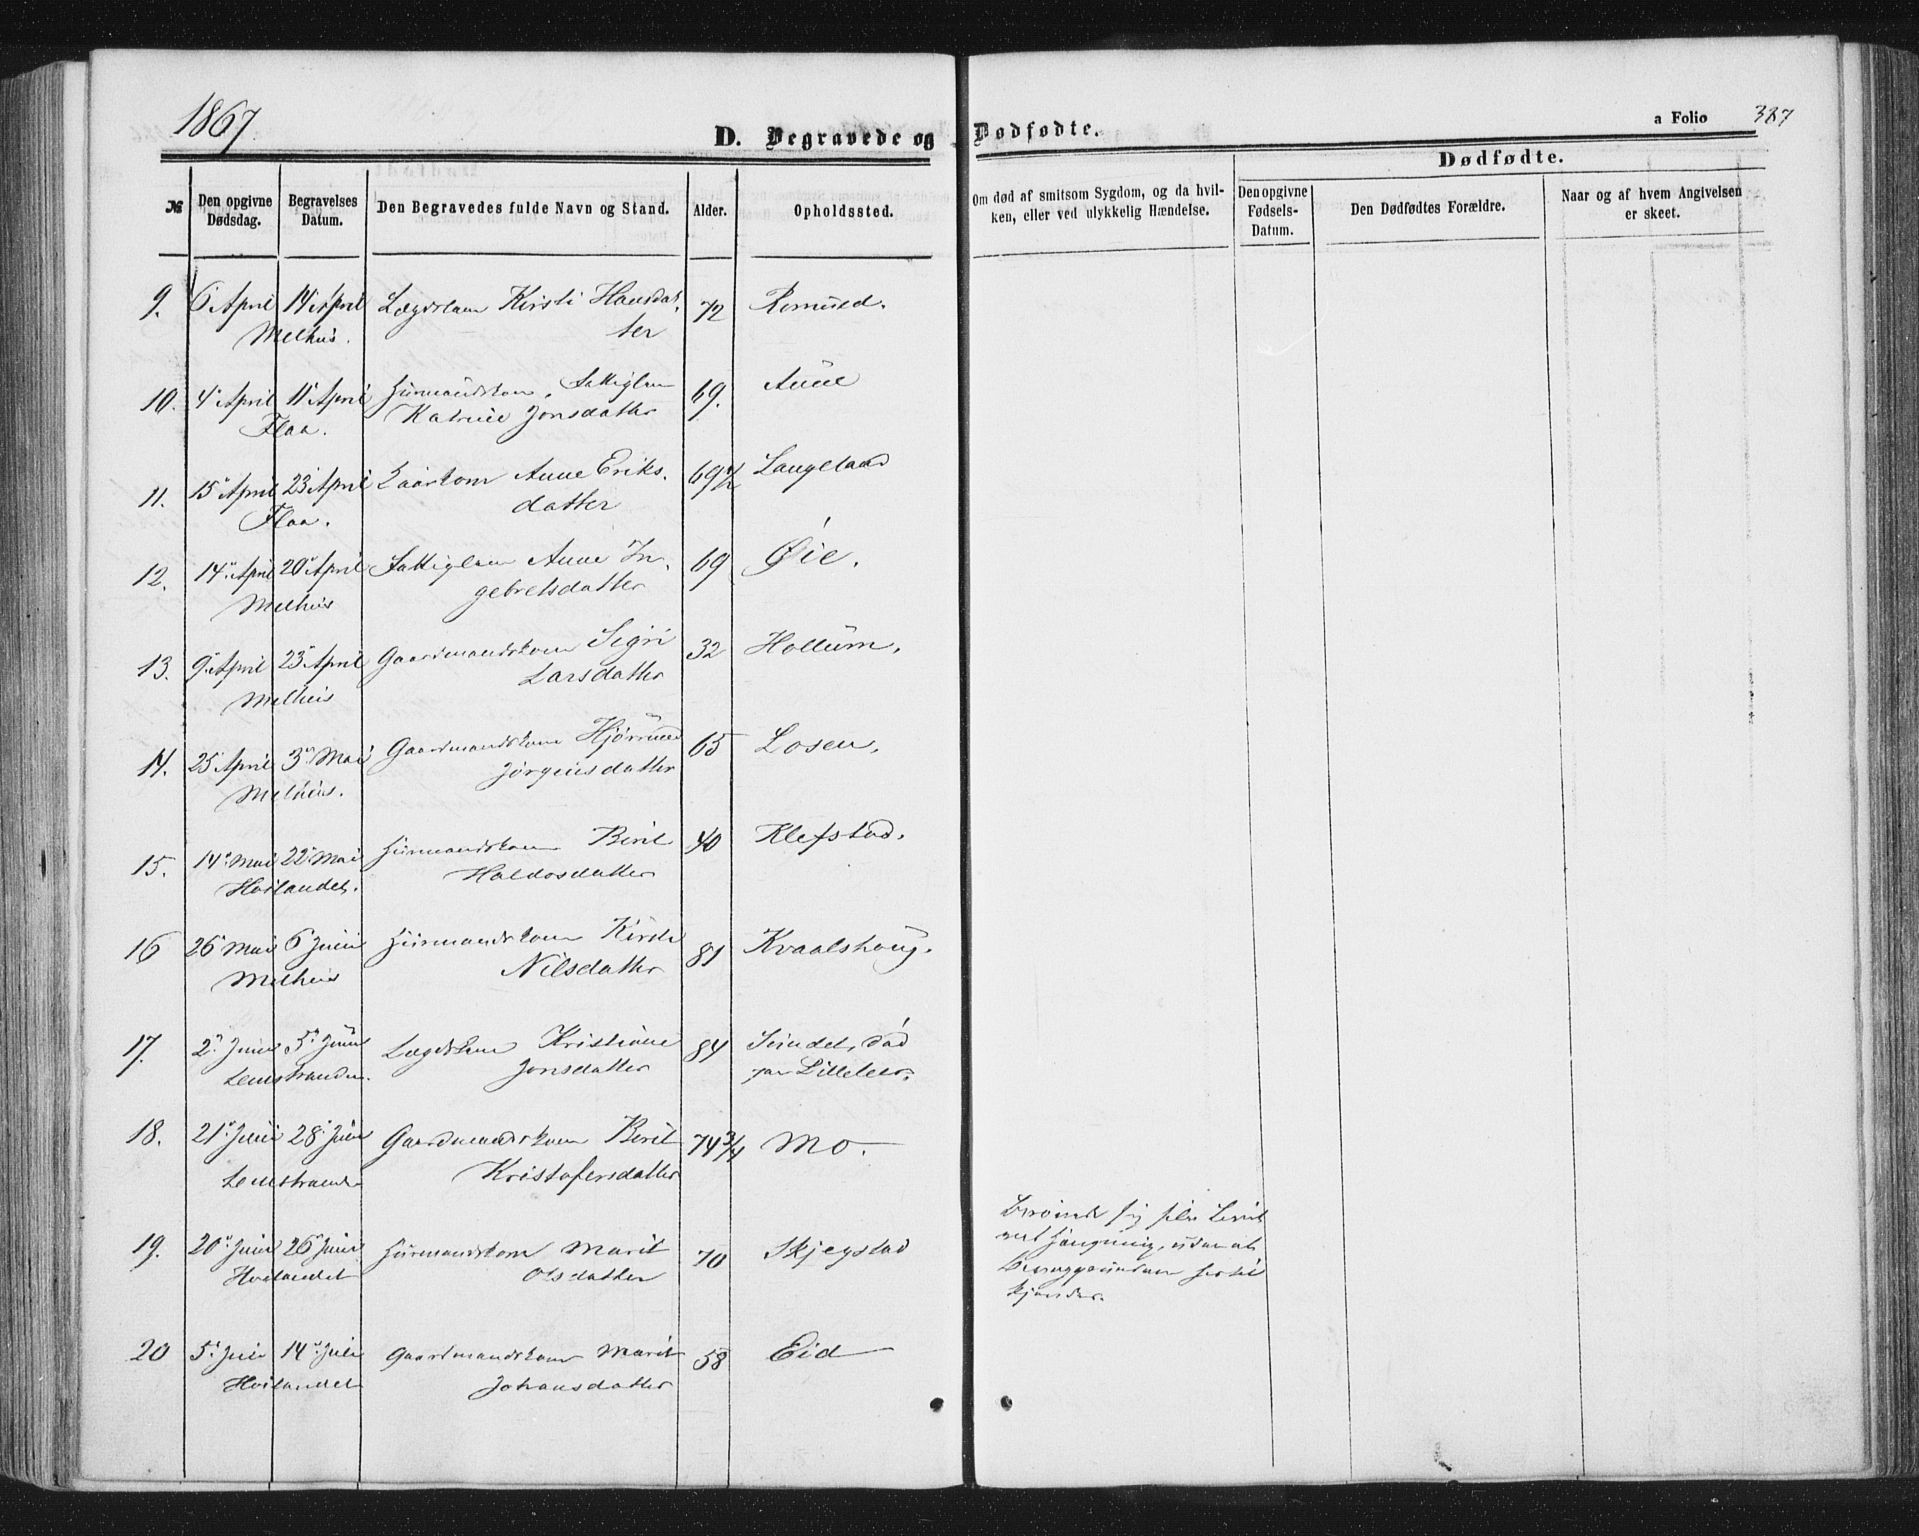 1867
D. Begravede og Dødfødte.
a Folio 387
№
Den opgivne Dødsdag.
Begravelses Datum.
Den Begravedes fulde Navn og Stand.
Alder.
Opholdssted.
Om død af smitsom Sygdom, og da hvil-
ken, eller ved ulykkelig Hændelse.
Dødfødte.
Den opgivne Fødsels-Datum.
Den Dødfødtes Forældre.
Naar og af hvem Angivelsen
er skeet.
9. 6 April 14 April Lægdslem Kirsti Hansdat- 72
Melhus. ter
10. 4 April 11 April 69. Aune
Flaa. Jonsdatter
11. 15 April 23 April Anne Eriks- 69½
Flaa. datter
12. 14 April 20 April Fattiglem Anne In- 69 Øie.
Melhus gebretsdatter
13. 9 April 23 April Gaardmandskone Sigri 32 Hollum.
Melhus Larsdatter
14. 25 April 3 Mai Gaardmandskone 65 Losen.
Melhus. Jørgensdatter
15. 14 Mai 22 Mai Huusmandskone Berit 40 Klefstad.
Høilandet. Haldosdatter
16 26 Mai 6 Juni Huusmandskone Kirsti 81 Kvaalshaug.
Melhus Nilsdatter
17. 2 Juni 5 Juni Lægdslem Kristiane 84 død
Leinstranden. Jonsdatter paa
18. 21 Juni 28 Juni Gaardmandskone Berit 74¾ Mo.
Leinstranden Kristofersdatter
19. 20 Juni 26 Juni Huusmandskone Marit 70 Skjegstad
Høilandet Olsdatter
Berøvede sig selv Livet
ved Hængning, uden at
Bevæggrunden
20 5 Juli 14 Juli Gaardmandskone Marit 58 Eid
Høilandet Johansdatter